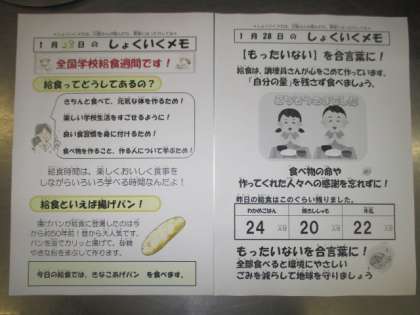 1月28日の しょくいくメモ
全国学校給食週間です!
給食ってどうしてあるの?
きちんと食べて、元気な体を作るため!
楽しい学校生活をすごせるように!
良い食習慣を身に付けるため!
食べ物を作ること、作る人について学ぶため!
給食時間は、楽しくおいしく食事を
しながらいろいろ学べる時間なんだよ!
給食といえば揚げパン!
揚げパンが給食に登場したのは今
から約50年前!昔から大人気です。
パンを油でカリッと揚げて、砂糖
やきな粉をまぶして作ります。
今日の給食では、きなこあげパン を食べます。
1月28日の しょくいくメモ
【もったいない】を合言葉に!
給食は、調理員さんが心をこめて作っています。
「自分の量」を残さず食べましょう。
ごちそうさまでした
食べ物の命や
作ってくれた人々への感謝を忘れずに!
昨日の給食はこのぐらい残りました。
わかめごはん 焼きししゃも 牛乳
24人分 20人分 22人分
もったいないを合言葉に!
全部食べると環境にやさしい
ごみを減らして地球を守りましょう